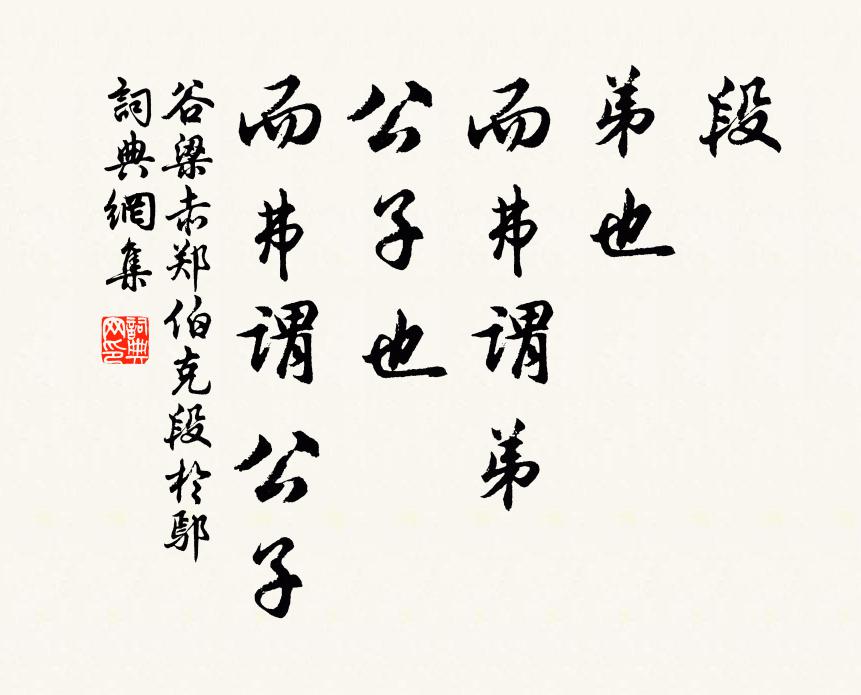 段
弟也
而弗谓弟
公子也
而弗谓公子
谷梁赤郑伯克段於鄢
詞典網集
詞典网印